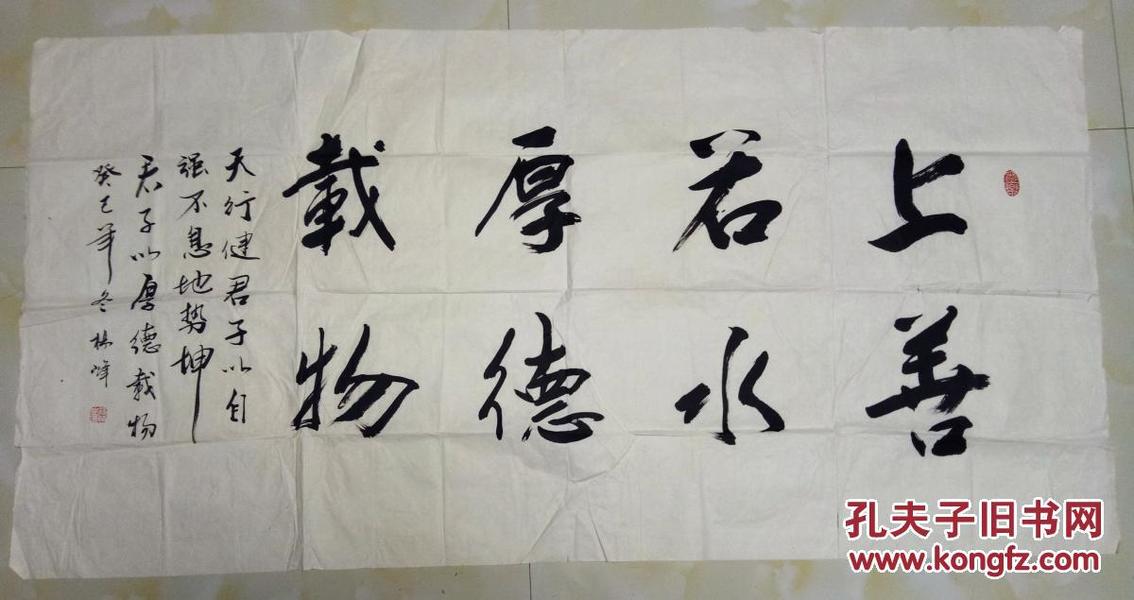 上善
若水
厚德
載物
天行健君子以自
强不息地势坤
君子以厚德载物
癸巳年冬楊峰
孔夫子旧书网
www.kongfz.com